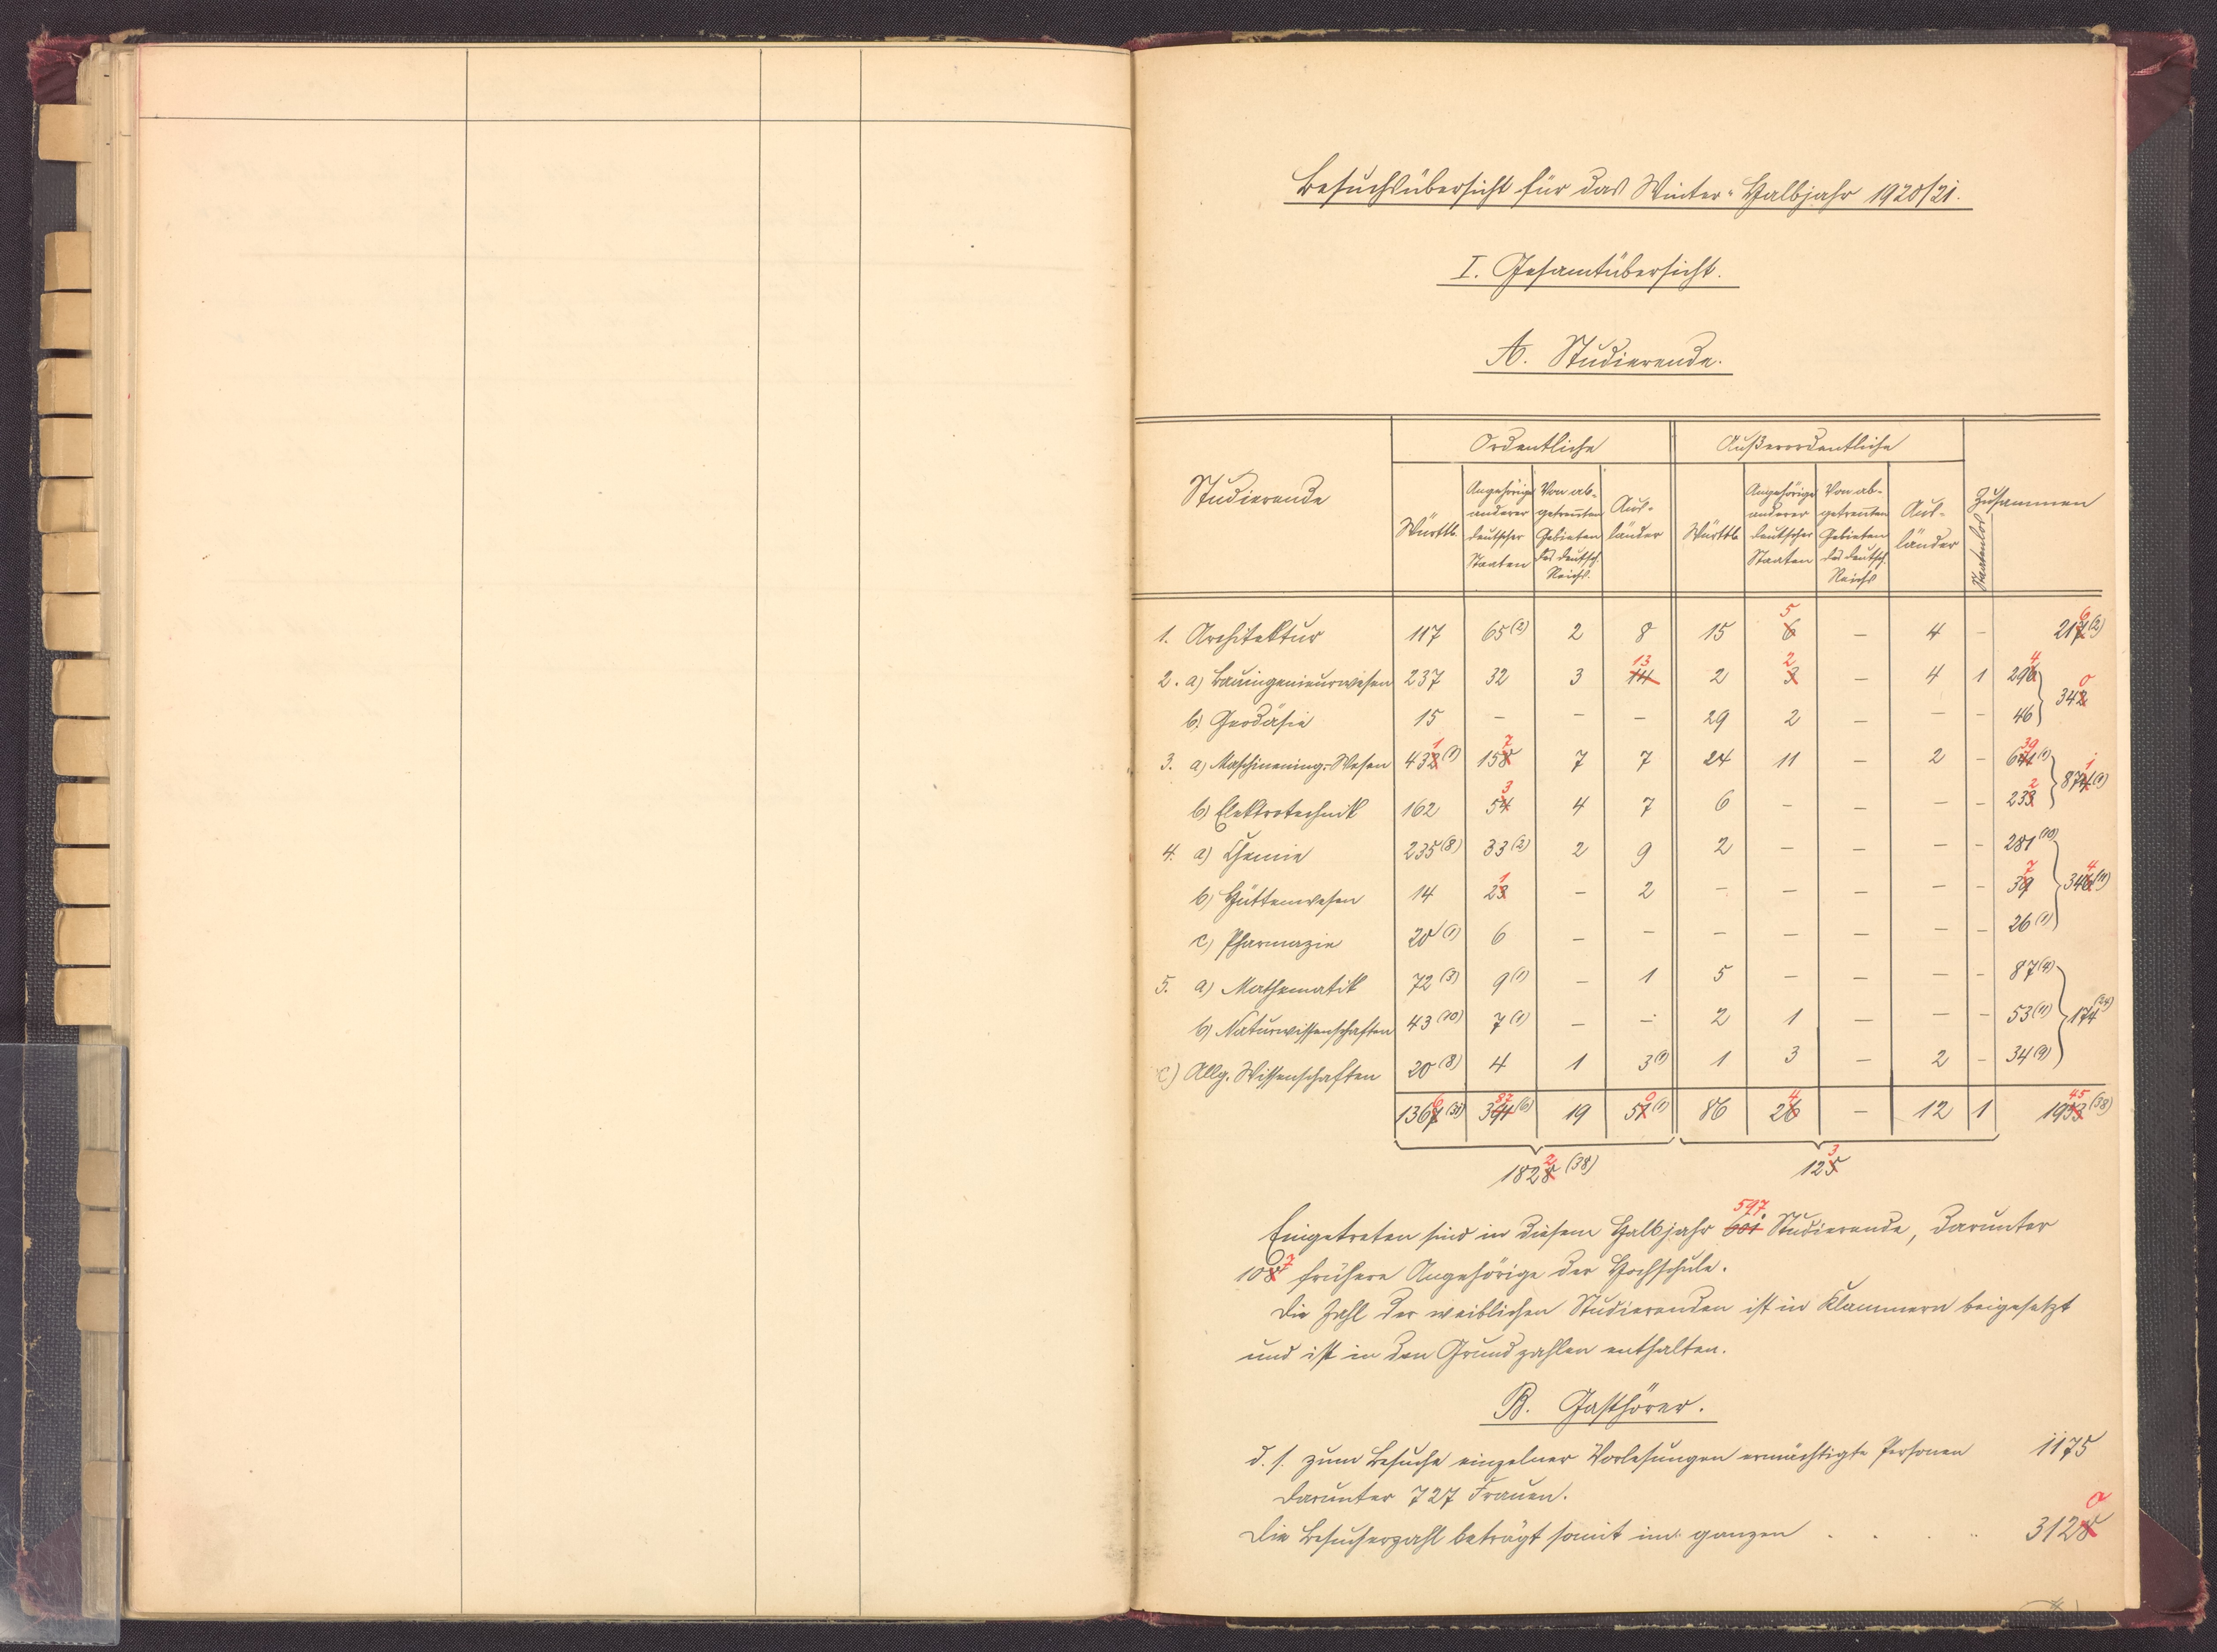 Besuchsübersicht für das Winter-Halbjahr 1920/21.
I. Gesamtübersicht.
A. Studierende.
Studierende Ordentliche Außerordentliche Zusammen
Württb. Angehörige anderer deutscher Staaten Von abgetrennten Gebieten des deutsch. Reichs. Ausländer Württb. Angehörige anderer deutscher Staaten Von abgetrennten Gebieten des deutsch. Reichs Ausländer Staatenlos
1. Architektur 117 65(2) 2 8 15 6 5 – 4 – 217 6 (2)
2. a) Bauingenieurwesen 237 32 3 14 13 2 3 2 – 4 1 296 4
342 0
b) Geodäsie 15 – – – 29 2 – – – 46
3. a) Maschinening.-Wesen 432 1 (1) 158 7 7 7 24 11 – 2 – 641 39 (1)
874 1 (1)
b) Elektrotechnik 162 54 3 4 7 6 – – – – 233 2
4. a) Chemie 235(8) 33(2) 2 9 2 – – – – 281(10)
b) Hüttenwesen 14 23 1 – 2 – – – – – 39 7
346 4 (11)
c) Pharmazie 20(1) 6 – – – – – – – 26(1)
5. a) Mathematik 72(3) 9(1) – 1 5 – – – – 87(4)
b) Naturwissenschaften 43(10) 7(1) – – 2 1 – – – 53(11)
174(24)
c) Allg. Wissenschaften 20(8) 4 1 3(1) 1 3 – 2 – 34(9)
1367 6 (31) 391 87 (6) 19 51 0 (1) 86 26 4 – 12 1 1953 45 (38)
1828 2 (38) 125 3
Eingetreten sind in diesem Halbjahr 601 597 Studierende, darunter
108 7 frühere Angehörige der Hochschule.
Die Zahl der weiblichen Studierenden ist in Klammern beigesetzt
und ist in den Grundzahlen enthalten.
B. Gasthörer.
d. s. zum Besuche einzelner Vorlesungen ermächtigte Personen 1175
darunter 727 Frauen.
Die Besucherzahl beträgt somit im ganzen . . . . 3128 0